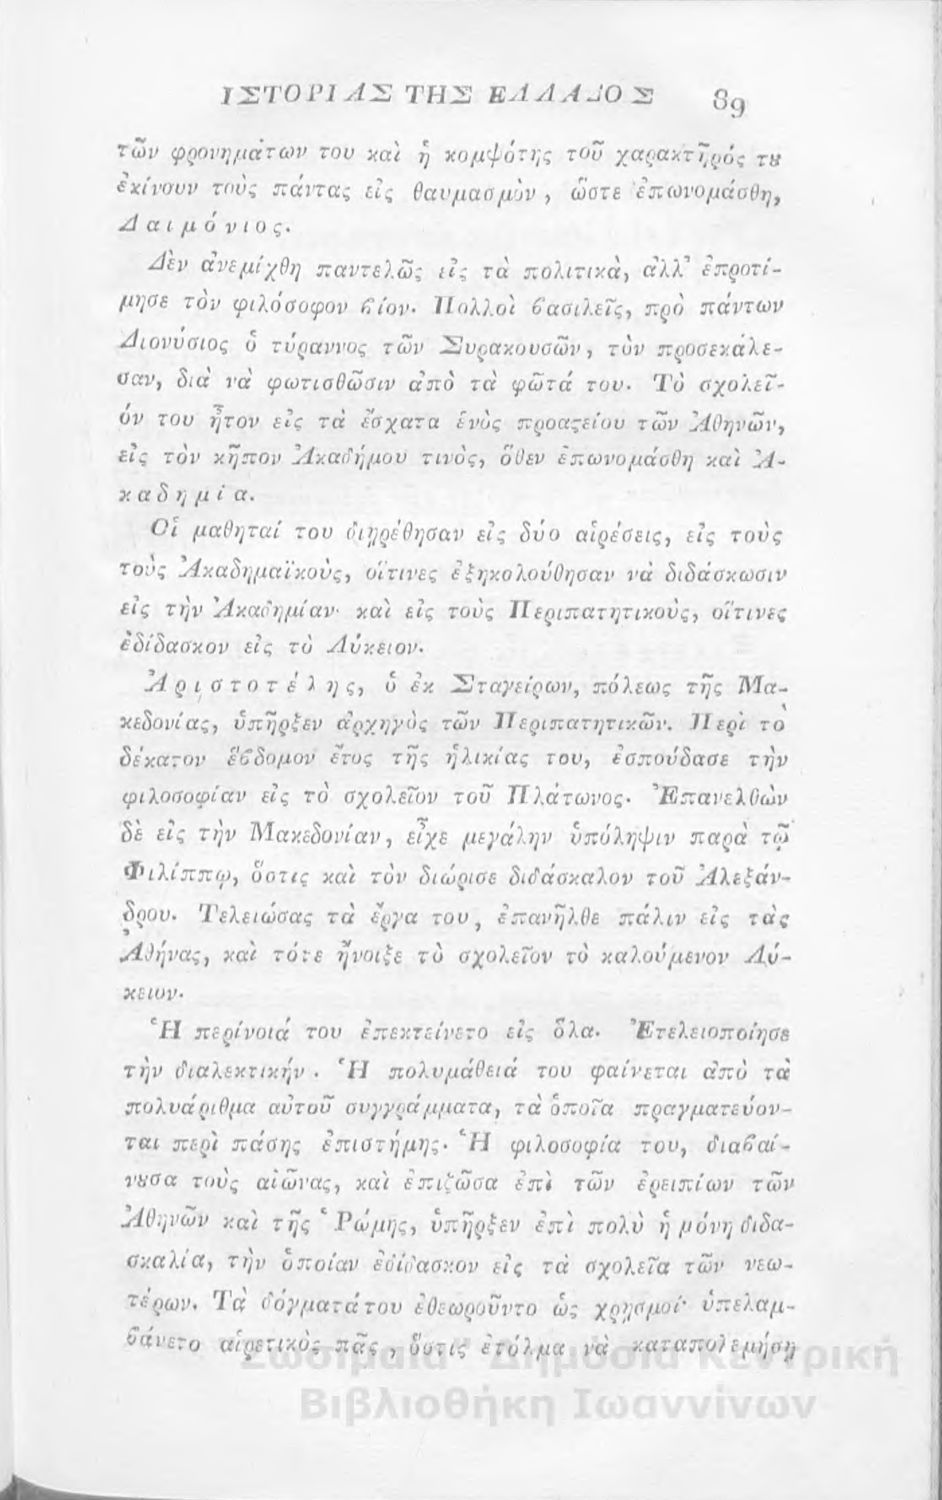 ΙΣΤΟΡΙΑΣ ΤΗΣ ΕΛΛΑΔΟΣ 89
τῶν φρονημάτων του καὶ ἡ κομψότης τοῦ χαρακτῆρός τȣ
ἐκίνουν τοὺς πάντας εἰς θαυμασμὸν, ὥστε ἐπωνομάσθη,
Δαιμόνιος.
Δὲν ἀνεμίχθη παντελῶς εἰς τὰ πολιτικὰ, ἀλλ' ἐπροτί-
μησε τὸν φιλόσοφον βίον. Πολλοὶ βασιλεῖς, πρὸ πάντων
Διονύσιος ὁ τύραννος τῶν Συρακουσῶν, τὸν προσεκάλε-
σαν, διὰ νὰ φωτισθῶσιν ἀπὸ τὰ φῶτά του. Τὸ σχολεῖ-
όν του ἦτον εἰς τὰ ἔσχατα ἑνὸς προαϛείου τῶν Ἀθηνῶν,
εἰς τὸν κῆπον Ἀκαδήμου τινὸς, ὅθεν ἐπωνομάσθη καὶ Ἀ-
καδημία.
Οἱ μαθηταί του διῃρέθησαν εἰς δύο αἱρέσεις, εἰς τοὺς
τοὺς Ἀκαδημαϊκοὺς, οἵτινες ἐξηκολούθησαν νὰ διδάσκωσιν
εἰς τὴν Ἀκαδημίαν· καὶ εἰς τοὺς Περιπατητικοὺς, οἵτινες
ἐδίδασκον εἰς τὸ Λύκειον.
Ἀριστοτέλης, ὁ ἐκ Σταγείρων, πόλεως τῆς Μα-
κεδονίας, ὑπῆρξεν ἀρχηγὸς τῶν Περιπατητικῶν. Περὶ τὸ
δέκατον ἕβδομον ἔτος τῆς ἡλικίας του, ἐσπούδασε τὴν
φιλοσοφίαν εἰς τὸ σχολεῖον τοῦ Πλάτωνος. Ἐπανελθὼν
δὲ εἰς τὴν Μακεδονίαν, εἶχε μεγάλην ὑπόληψιν παρὰ τῷ
Φιλίππῳ, ὅστις καὶ τὸν διώρισε διδάσκαλον τοῦ Ἀλεξάν-
δρου. Τελειώσας τὰ ἔργα του, ἐπανῆλθε πάλιν εἰς τὰς
Ἀθήνας, καὶ τότε ἤνοιξε τὸ σχολεῖον τὸ καλούμενον Λύ-
κειον.
Ἡ περίνοιά του ἐπεκτείνετο εἰς ὅλα. Ἐτελειοποίησε
τὴν διαλεκτικήν. Ἡ πολυμάθειά του φαίνεται ἀπὸ τὰ
πολυάριθμα αὐτοῦ συγγράμματα, τὰ ὁποῖα πραγματεύον-
ται περὶ πάσης ἐπιστήμης. Ἡ φιλοσοφία του, διαβαί-
νȣσα τοὺς αἰῶνας, καὶ ἐπιζῶσα ἐπὶ τῶν ἐρειπίων τῶν
Ἀθηνῶν καὶ τῆς Ῥώμης, ὑπῆρξεν ἐπὶ πολὺ ἡ μόνη διδα-
σκαλία, τὴν ὁποίαν ἐδίδασκον εἰς τὰ σχολεῖα τῶν νεω-
τέρων. Τὰ δόγματά του ἐθεωροῦντο ὡς χρησμοί· ὑπελαμ-
βάνετο αἱρετικὸς πᾶς, ὅστις ἐτόλμα νὰ καταπολεμήσῃ
Ζωσιμαία Δημόσια Κεντρική
Βιβλιοθήκη Ιωαννίνων